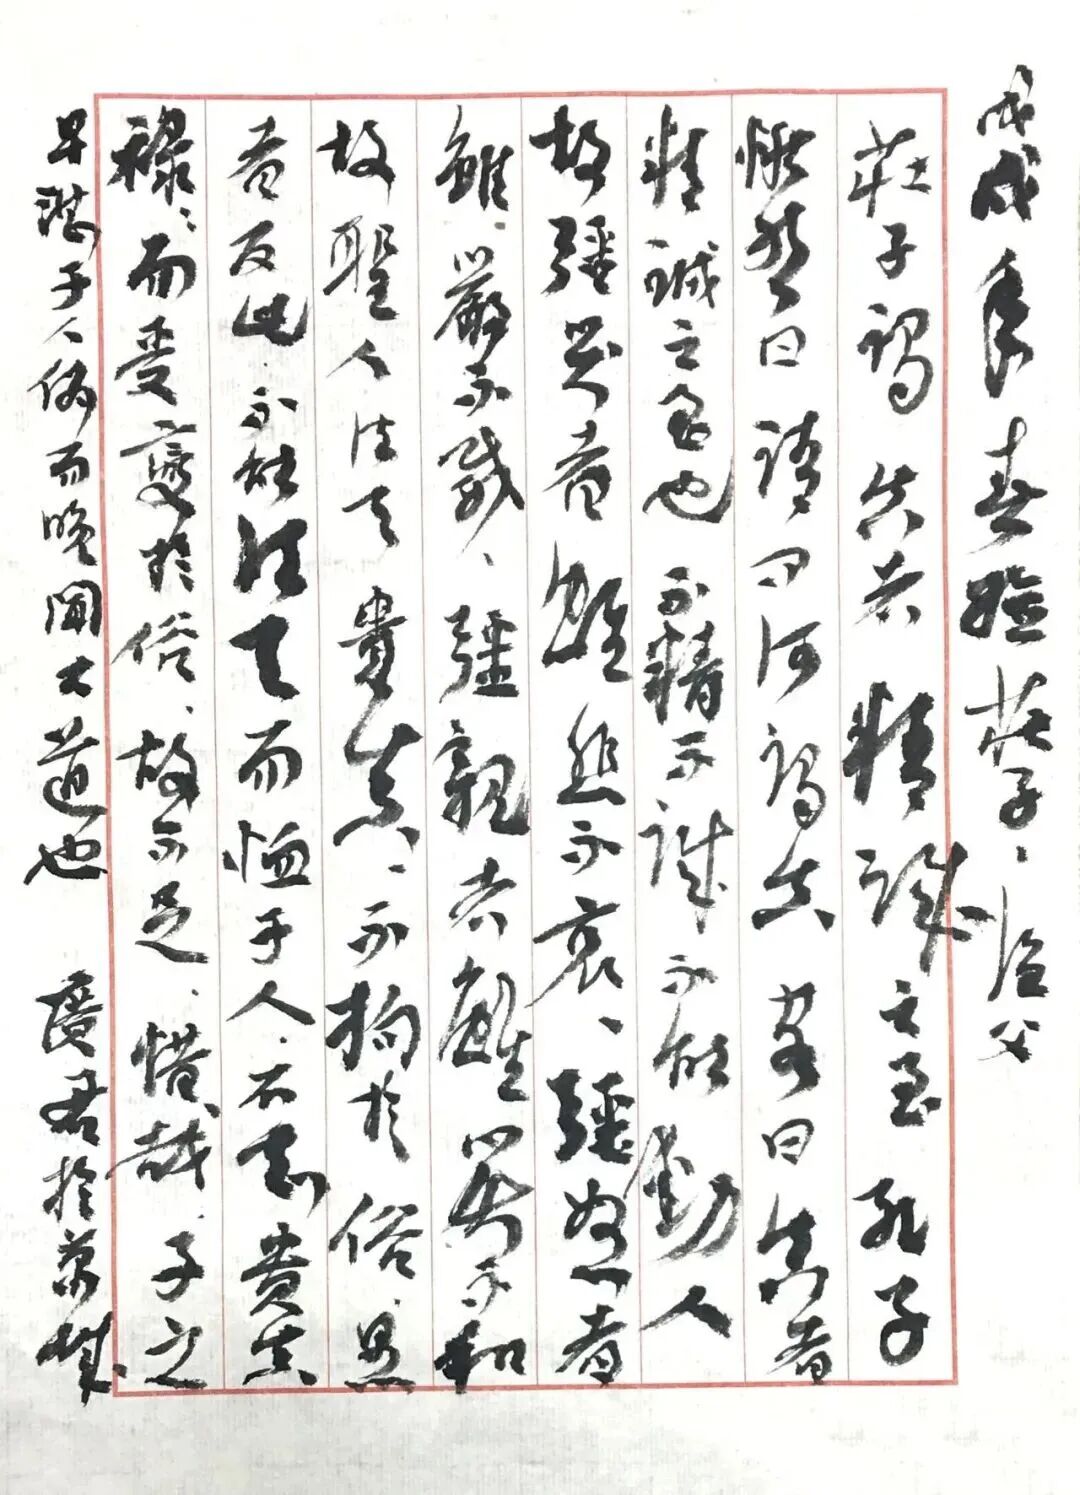 戊戌年春臨莊子、漁父
莊子謂 真者 精誠之至 孔子
愀然曰 請问何謂真 客曰真者
精誠之至也 不精不誠不能動人
故強哭者 雖悲不哀、強怒者
雖嚴不威、強親者雖笑不和
故聖人法天貴真、不拘於俗、愚
者反此 不能法天而恤于人、不知貴真
祿祿而受變於俗、故不足、惜哉、子之
早湛于人偽而晚聞大道也 廣君於京城